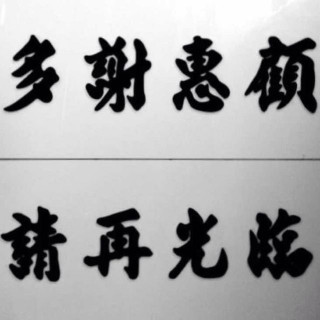 多謝惠顧
請再光臨